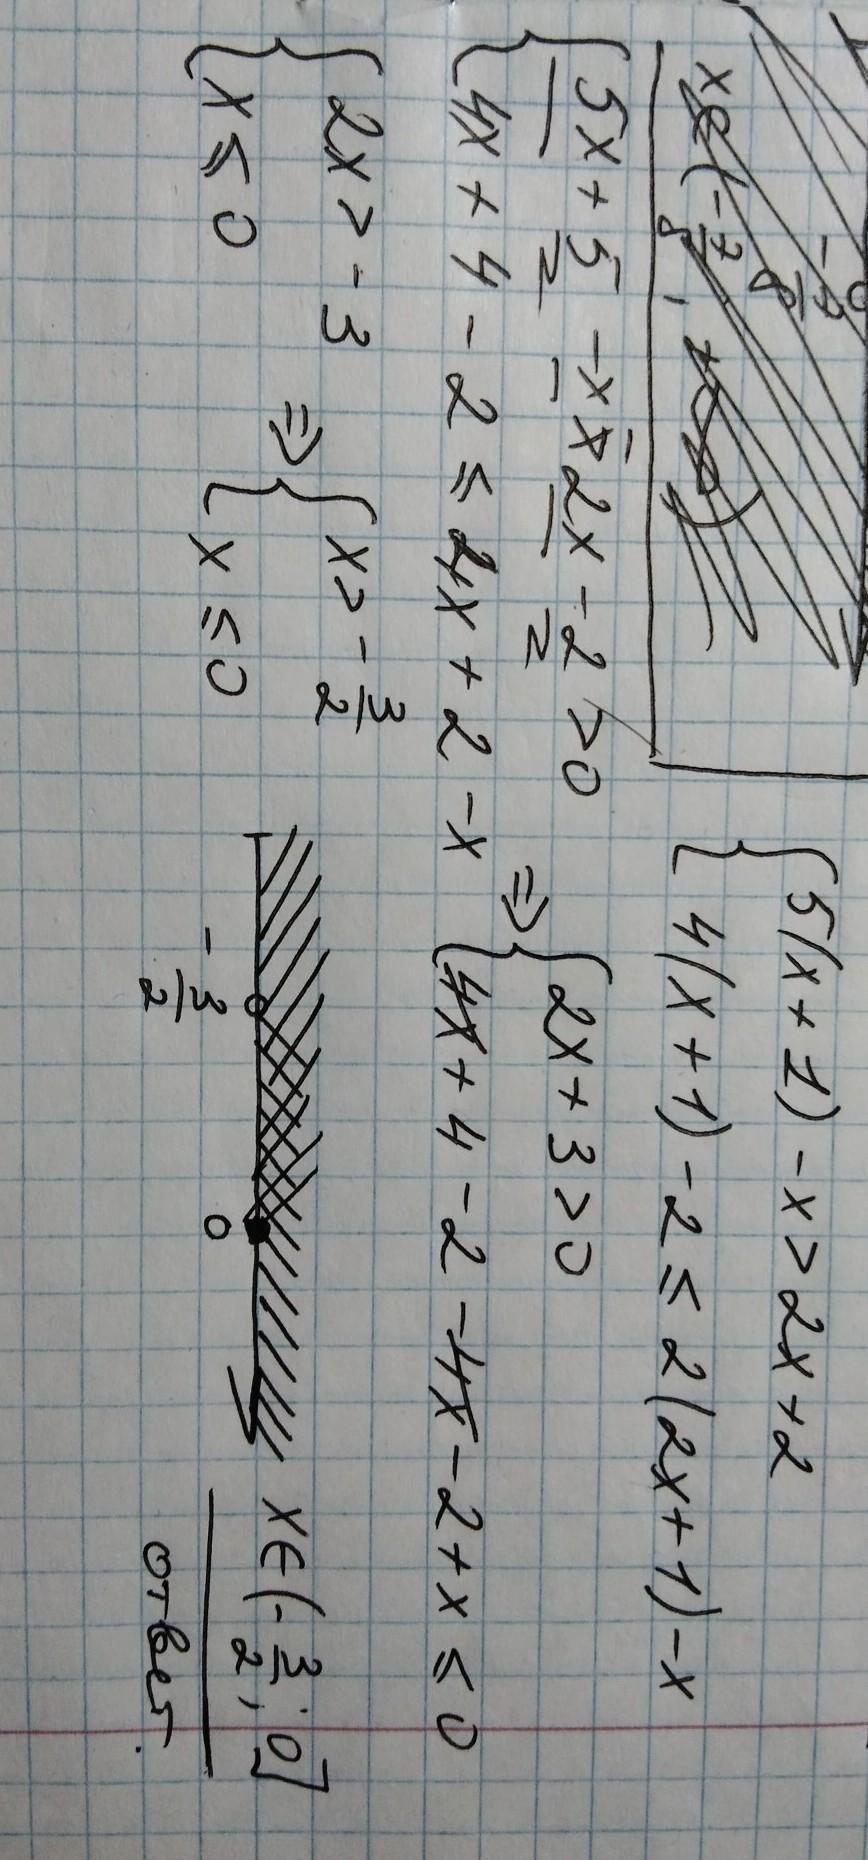 { 5(x+1) -x > 2x+2
4(x+1) -2 ≤ 2(2x+1) -x
{ 5x+5 -x -2x -2 > 0 ⇒ { 2x+3>0
4x+4 -2 ≤ 4x+2 -x { 4x+4 -2 -4x -2+x ≤ 0
{ 2x > -3 ⇒ { x > -3/2
x ≤ 0 x ≤ 0
-3/2 0
x∈(-3/2; 0]
ответ.